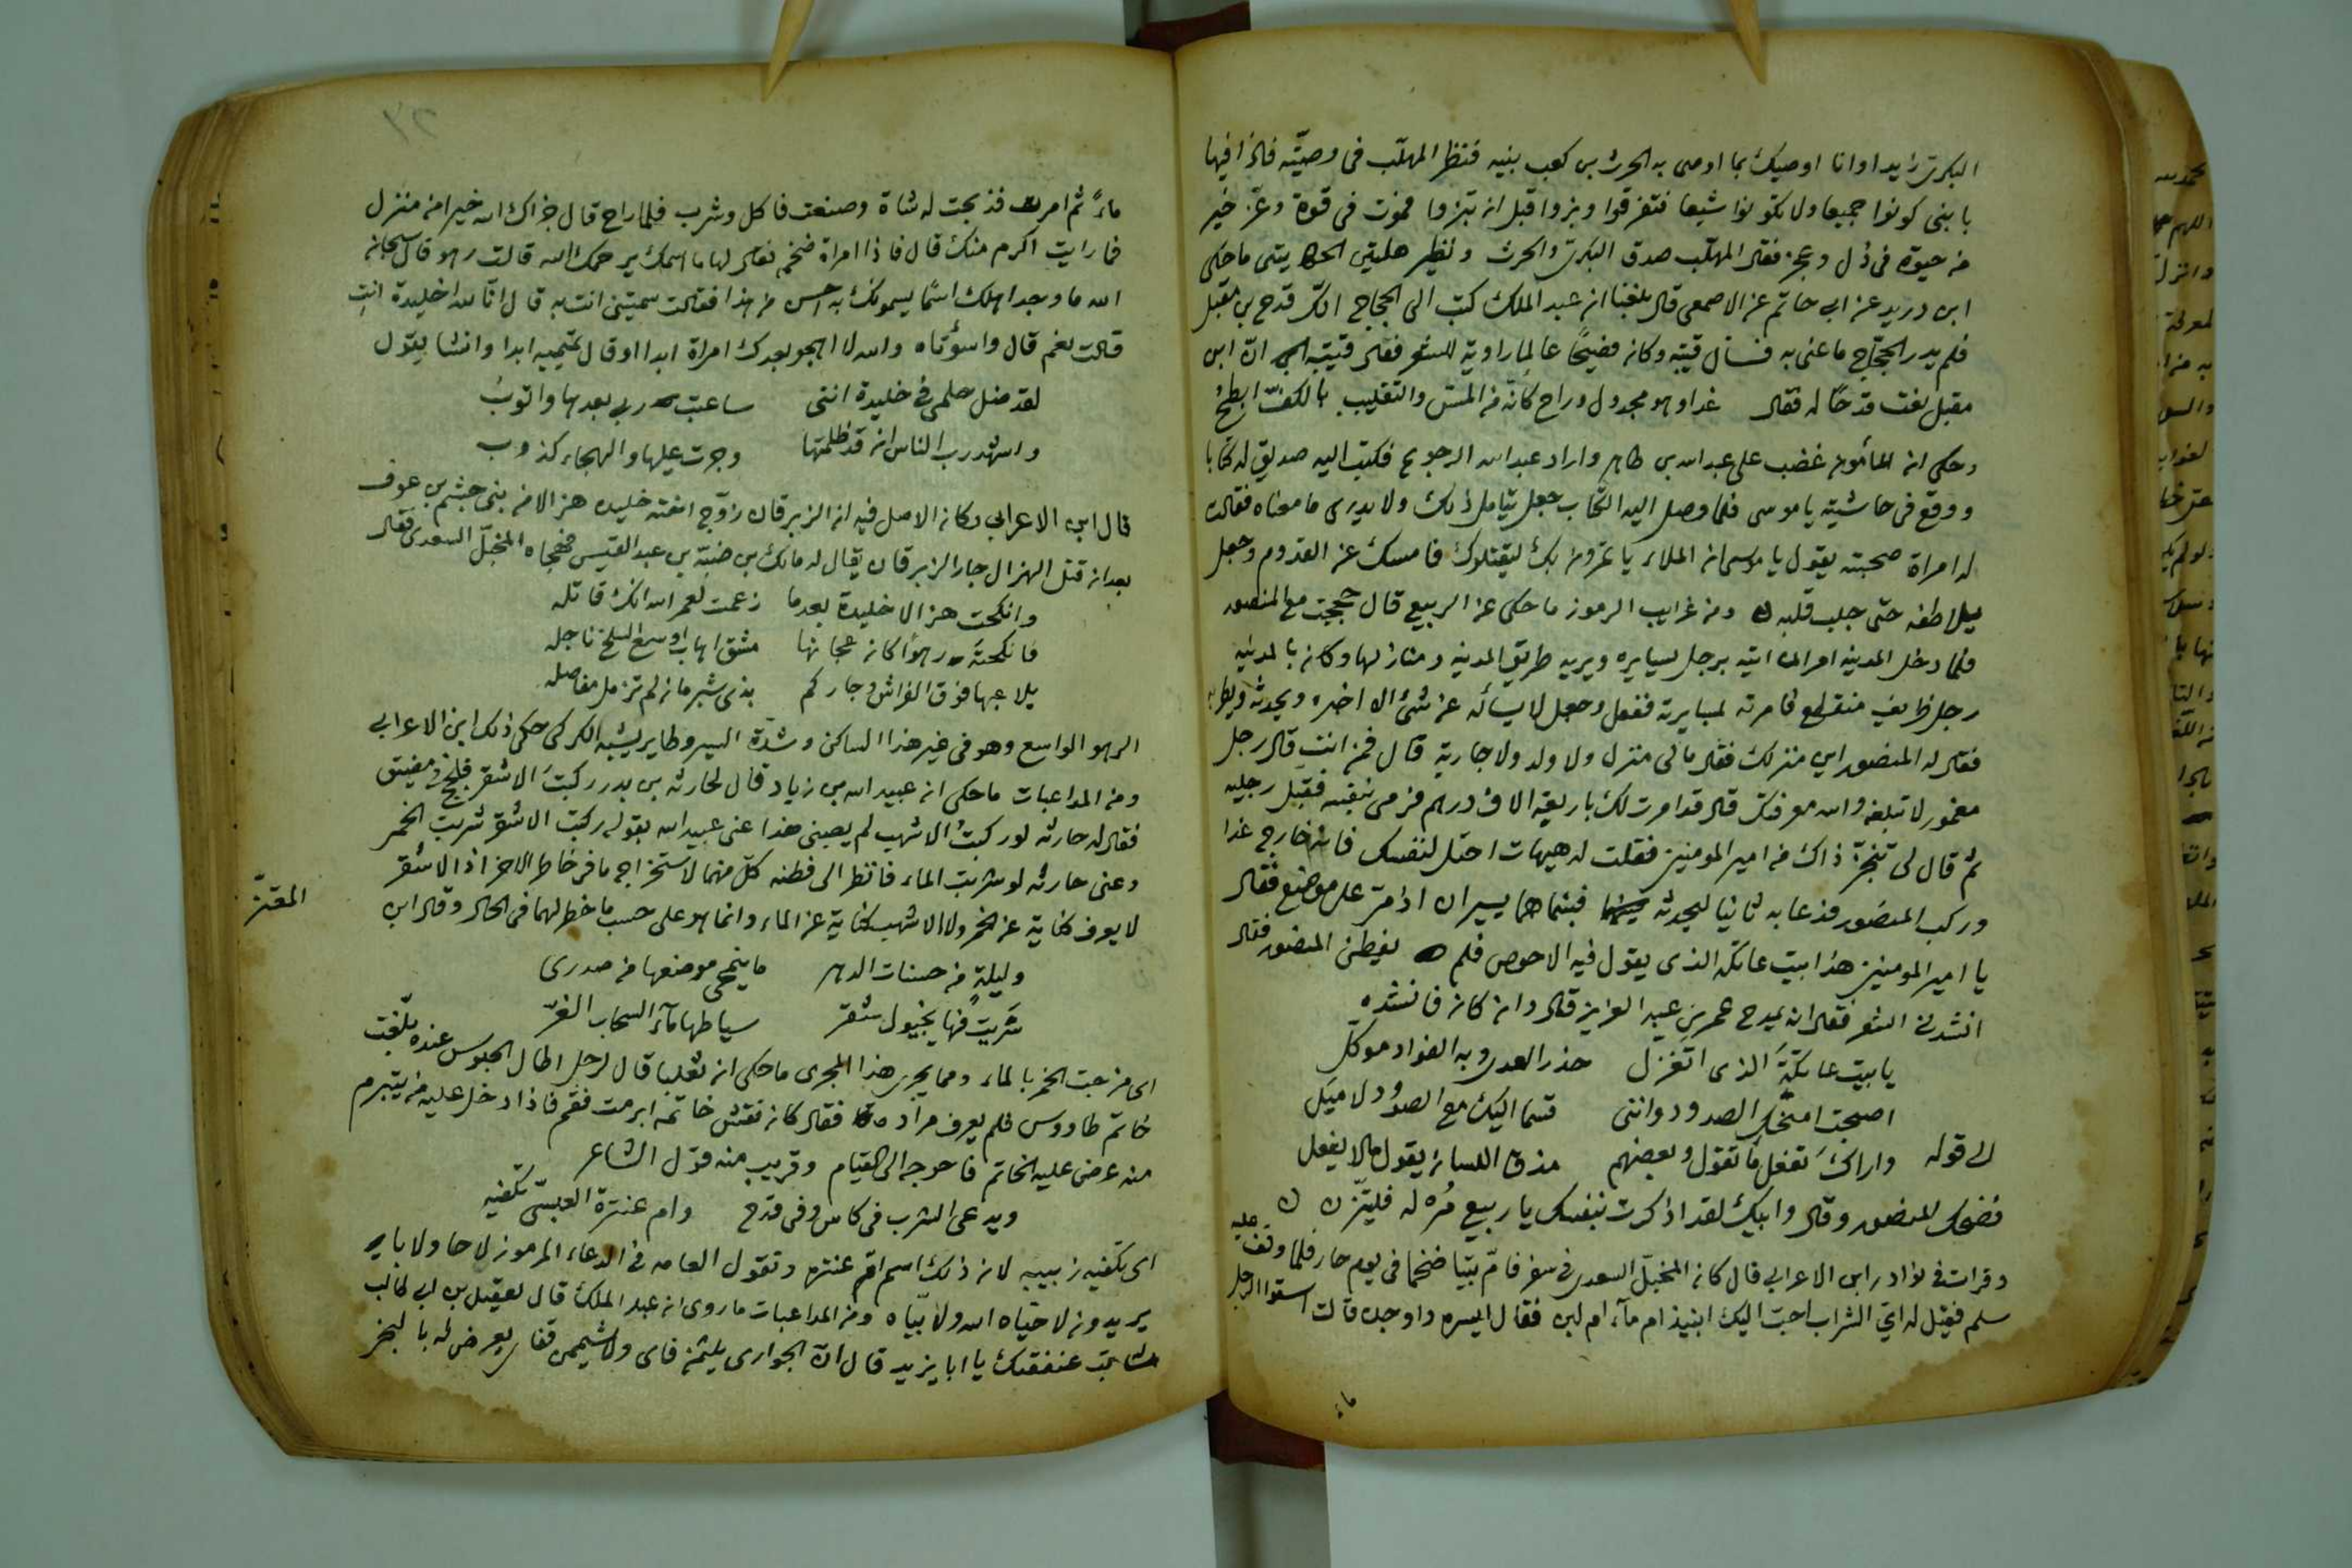 البكرى زايدا وانا اوصيك بما اوصى به الحرث بن كعب بنيه فنظر المهلب فى وصيته فاذا فيها
يا بنى كونوا جميعا ولا تكونوا شيعا فتفرقوا وبزوا قبل ان تبزوا فموت فى قوة وعز خير
من حيوة فى ذل وعجز فقال المهلب صدق البكرى والحرث ونظير هاتين الحكايتين ما حكى
ابن دريد عن ابى حاتم عن الاصمعى قال بلغنا ان عبد الملك كتب الى الحجاج انك قدح بن مقبل
فلم يدر الحجاج ما عنى به فسال قتيبة وكان فصيحًا عالما راوية للشعر فقال قتيبة ان ابن
مقبل نعت قدحًا له فقال غدا وهو مجدول وراح كانه من المس والتقليب بالكف ابطح
وحكى ان المأمون غضب على عبد الله بن طاهر واراد عبد الله الرجوع فكتب اليه صديق له كتابا
ووقع فى حاشيته يا موسى فلما وصل اليه الكتاب جعل يتامل ذلك ولا يدرى ما معناه فقالت
له امراة صحبته يقول يا موسى ان الملاء يأتمرون بك ليقتلوك فامسك عن القدوم وجعل
يلاطفه حتى جلب قلبه ومن غرايب الرموز ما حكى عن الربيع قال حججت مع المنصور
فلما دخل المدينه امرنى ان اتيه برجل يسايره ويريه طريق المدينه ومنازلها وكان بالمدينه
رجل ظريف منقطع فامرته بمسايرته ففعل وجعل لا يسأله عن شئ الا اخبره ويحدثه ويطربه
فقال له المنصور اين منزلك فقال مالى منزل ولا ولد ولا جارية قال فمن انت قال رجل
مغمور لا تبلغه والله معرفتك قال قد امرت لك باربعة الاف درهم فرمى بنفسه فقبل رجليه
ثم قال لى تنجز ذاك من امير المومنين فقلت له هيهات احتل لنفسك فانه خارج غدا
وركب المنصور فدعا به ثانيا ليحدثه فبينما هما يسيران اذ مر على موضع فقال
يا امير المومنين هذا بيت عاتكه الذى يقول فيه الاحوص فلم يفطن المنصور فقال
انشدنى الشعر فقال انه يمدح عمر بن عبد العزيز قال وان كان فانشده
يا بيت عاتكة الذى اتغزل حذر العدى وبه الفواد موكل
اصبحت امنحك الصدود واننى قسما اليك مع الصدود لاميل
الى قوله واراك تفعل ما تقول وبعضهم مذق اللسان يقول ما لا يفعل
فضحك المنصور وقال وابيك لقد اذكرت بنفسك يا ربيع مره له فليتزن
وقرات فى نوادر ابن الاعرابى قال كان المخبل السعدى فى سفر فام بيتا ضخما فى يوم حار فلما وقف عليه
سلم فقيل له اى الشراب احب اليك انبيذ ام مآء ام لبن فقال ايسره واوجده قالت اسقوا الرجل
ماء
ماءً ثم امرت فذبحت له شاة وصنعت فاكل وشرب فلما راح قال جزاك الله خيرا من منزل
فما رايت اكرم منك قال فاذا امراة ضخمه فقال لها ما اسمك يرحمك الله قالت رهو قال سبحان
الله ما وجد اهلك اسمًا يسمونك به احسن من هذا فقالت سميتنى انت به قال انا لله اخليدة انتِ
قالت نعم قال واسؤتاه والله لا اهجو بعدك امراة ابدا او قال تميميه ابدا وانشا يقول
لقد ضل حلمى فى خليدة اننى ساعتب ربى بعدها واتوب
واشهد رب الناس ان قد ظلمتها وجرت عليها والهجاء كذوب
قال ابن الاعرابى وكان الاصل فيه ان الزبرقان زوّج اخته خليده هزالا من بنى جشم بن عوف
بعد ان قتل الهزال جار الزبرقان يقال له مالك بن ضبة بن عبد القيس فهجاه المخبل السعدى فقال
وانكحت هزالا خليدة بعدما زعمت لعمر الله انك قاتله
فانكحته رهوًا كان عجانها مشق اهاب اوسع السلخ ناجله
يلاعبها فوق الفراش وجاركم بذى شبرمان لم تزمل مفاصله
الرهو الواسع وهو فى غير هذا الساكن وشدة السير وطاير يشبه الكركى حكى ذلك ابن الاعرابى
ومن المداعبات ما حكى ان عبيد الله بن زياد قال لحارثه بن بدر ركبت الاشقر فلجج فى مضيق
فقال له حارثه لو ركبتُ الاشهب لم يصبنى هذا عنى عبيد الله بقوله ركبت الاشقر شربت الخمر
وعنى حارثه لو شربت الماء فانظر الى فطنه كل منهما لاستخراج ما فى خاطر الاخر اذ الاشقر
لا يعرف كناية عن الخمر ولا الاشهب كناية عن الماء وانما هو على حسب ما خطر لهما فى الحال وقال ابن
المعتز
وليلةٍ من حسنات الدهر ما ينمحى موضعها من صدرى
شَرِبت فيها بخيول شقر سياطها مآء السحاب الغر
اى مزجت الخمر بالماء ومما يجرى هذا المجرى ما حكى ان ثعلبا قال لرجل اطال الجلوس عنده بلغت
خاتم طاووس فلم يعرف مراده فقال كان نقش خاتمه ابرمت فقم فاذا دخل عليه من يتبرم
منه عرض عليه الخاتم فاحوجه الى القيام وقريب منه قول الشاعر
ويدعى الشرب فى كاس وفى قدح وام عنترة العبسى تكفيه
اى تكفيه زبيبه لان ذلك اسم ام عنتره وتقول العامه فى الدعاء المرموز لا حا ولا با
يريدون لا حيّاه الله ولا بيّاه ومن المداعبات ما روى ان عبد الملك قال لعقيل بن ابى طالب
شابت عنفقتك يا ابا يزيد قال ان الجوارى يلثمن فاى ولا يشممن قفاى يعرض له بالبخر